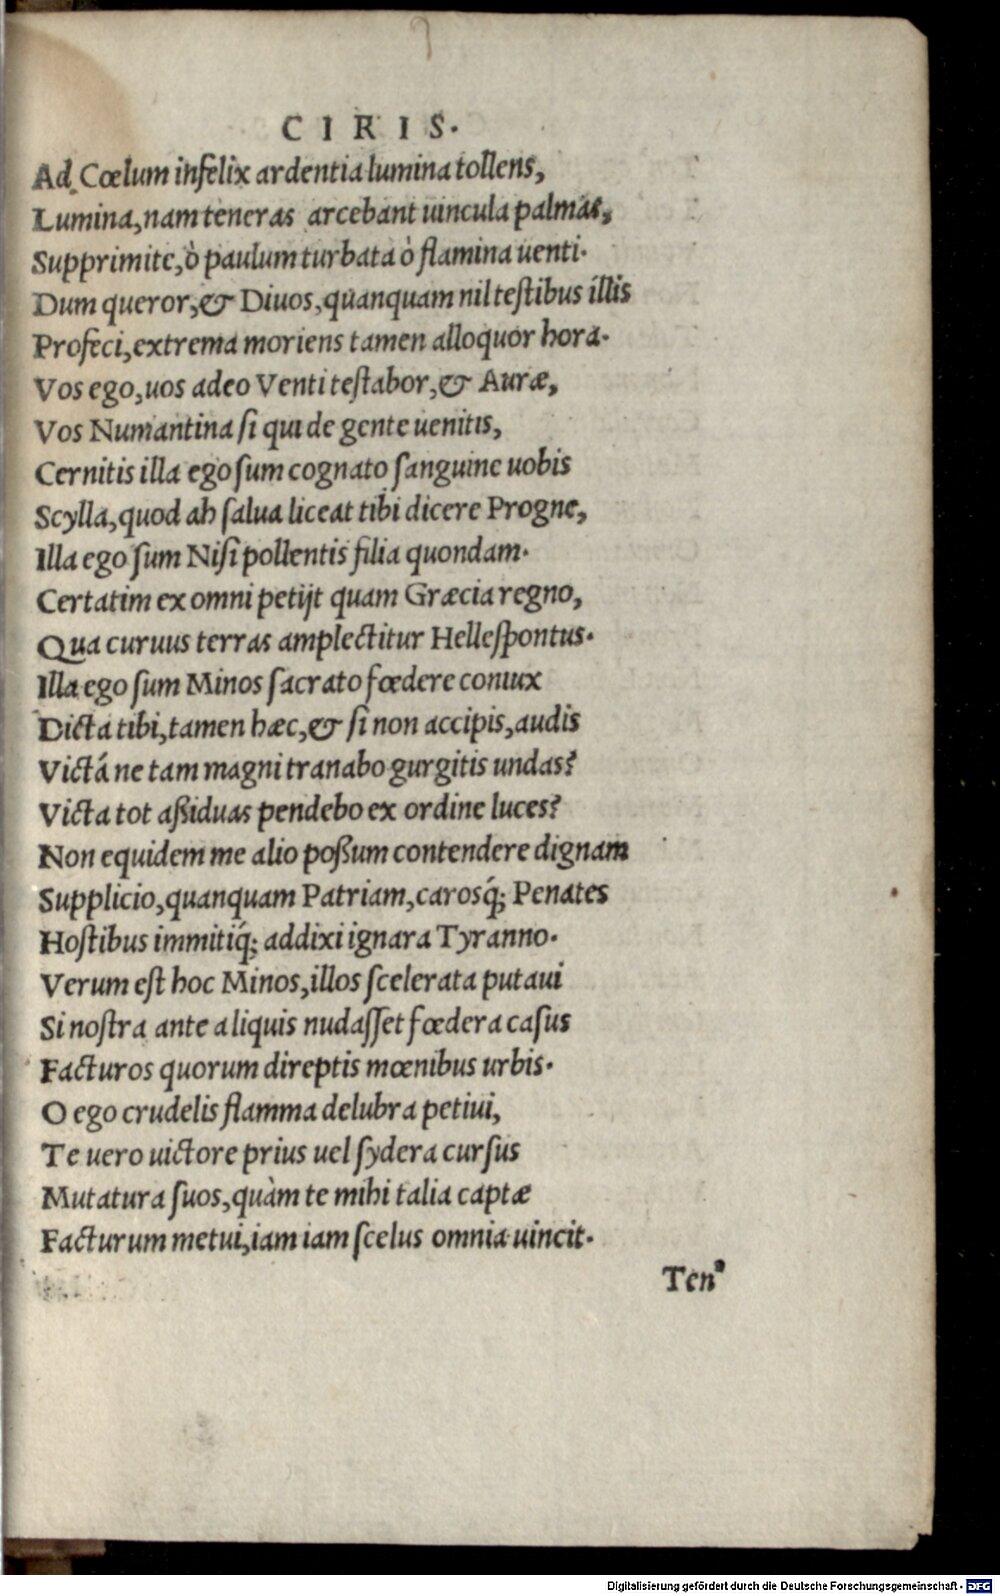 CIRIS.
Ad Cœlum infelix ardentia lumina tollens,
Lumina, nam teneras arcebant uincula palmas,
Supprimite, ò paulum turbata ò flamina uenti.
Dum queror, & Diuos, quanquam nil testibus illis
Profeci, extrema moriens tamen alloquor hora.
Vos ego, uos adeo Venti testabor, & Auræ,
Vos Numantina si qui de gente uenitis,
Cernitis illa ego sum cognato sanguine uobis
Scylla, quod ah salua liceat tibi dicere Progne,
Illa ego sum Nisi pollentis filia quondam.
Certatim ex omni petijt quam Græcia regno,
Qua curuus terras amplectitur Hellespontus.
Illa ego sum Minos sacrato fœdere coniux
Dicta tibi, tamen hæc, & si non accipis, audis
Victá ne tam magni tranabo gurgitis undas?
Victa tot aßiduas pendebo ex ordine luces?
Non equidem me alio poßum contendere dignam
Supplicio, quanquam Patriam, carosq́; Penates
Hostibus immitiq́; addixi ignara Tyranno.
Verum est hoc Minos, illos scelerata putaui
Si nostra ante aliquis nudasset fœdera casus
Facturos quorum direptis mœnibus urbis.
O ego crudelis flamma delubra petiui,
Te uero uictore prius uel sydera cursus
Mutatura suos, quàm te mihi talia captæ
Facturum metui, iam iam scelus omnia uincit.
Ten'
Digitalisierung gefördert durch die Deutsche Forschungsgemeinschaft - DFG